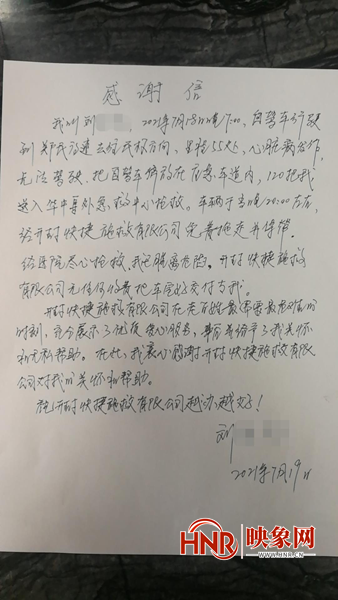 感谢信
我叫刘 2021年7月18日晚17:00,自驾车行驶
到郑民高速去往民权方向,里程55K处,心脏病发作,
无法驾驶,把自驾车停放在应急车道内,120把我
送入华中阜外急救中心抢救。车辆于当晚24:00左右,
经开封快捷施救有限公司免费拖走并停带。
经医院尽心抢救,我已脱离危险。开封快捷施救
有限公司无任何收费把车完好交付与我。
开封快捷施救有限公司在老百姓最需要最危难的
时刻,充分展示了优质贴心服务,事后并给予了我关怀
和无私帮助。在此,我衷心感谢开封快捷施救有限
公司对我的关怀和帮助。
祝开封快捷施救有限公司越办越好!
刘
2021年7月19日
HNR 映象网
WWW.HNR.CN